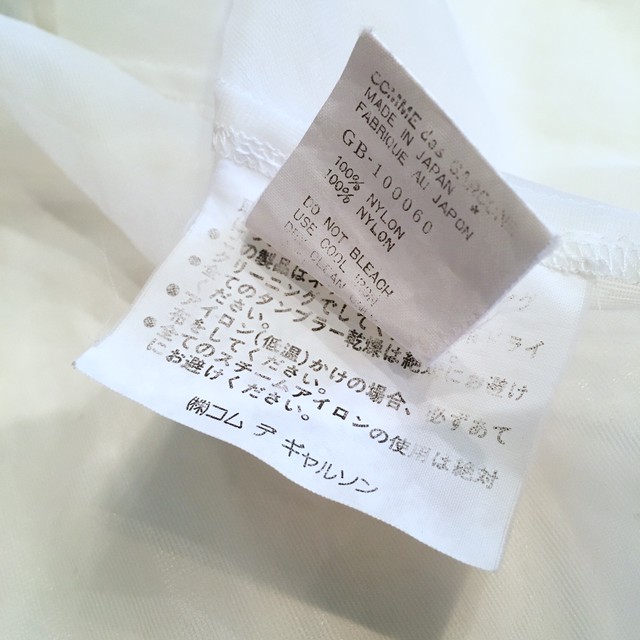 COMME des GARCONS
MADE IN JAPAN
FABRIQUE AU JAPON
GB-100060
100% NYLON
100% NYLON
DO NOT BLEACH
USE COOL IRON
DRY CLEAN
この製品は
クリーニングで
ください。
全てのタンブラー乾燥は絶対にお避け
ください。
アイロン(低温)かけの場合、必ずあて
布をしてください。
全てのスチームアイロンの使用は絶対
にお避けください。
㈱コム デ ギャルソン